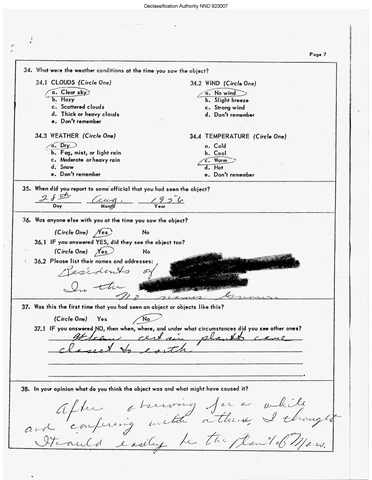 Declassification Authority NND 923007
Page 7
34. What were the weather conditions at the time you saw the object?
34.1 CLOUDS (Circle One) 34.2 WIND (Circle One)
a. Clear sky a. No wind
b. Hazy b. Slight breeze
c. Scattered clouds c. Strong wind
d. Thick or heavy clouds d. Don't remember
e. Don't remember
34.3 WEATHER (Circle One) 34.4 TEMPERATURE (Circle One)
a. Dry a. Cold
b. Fog, mist, or light rain b. Cool
c. Moderate or heavy rain c. Warm
d. Snow d. Hot
e. Don't remember e. Don't remember
35. When did you report to some official that you had seen the object?
28th Aug. 1956
Day Month Year
36. Was anyone else with you at the time you saw the object?
(Circle One) Yes No
36.1 IF you answered YES, did they see the object too?
(Circle One) Yes No
36.2 Please list their names and addresses:
Residents of
In the
No names known
37. Was this the first time that you had seen an object or objects like this?
(Circle One) Yes No
37.1 IF you answered NO, then when, where, and under what circumstances did you see other ones?
When certain planets came
closest to earth
38. In your opinion what do you think the object was and what might have caused it?
After observing for a while
and conferring with others, I thought
It could easily be the planet of Mars.